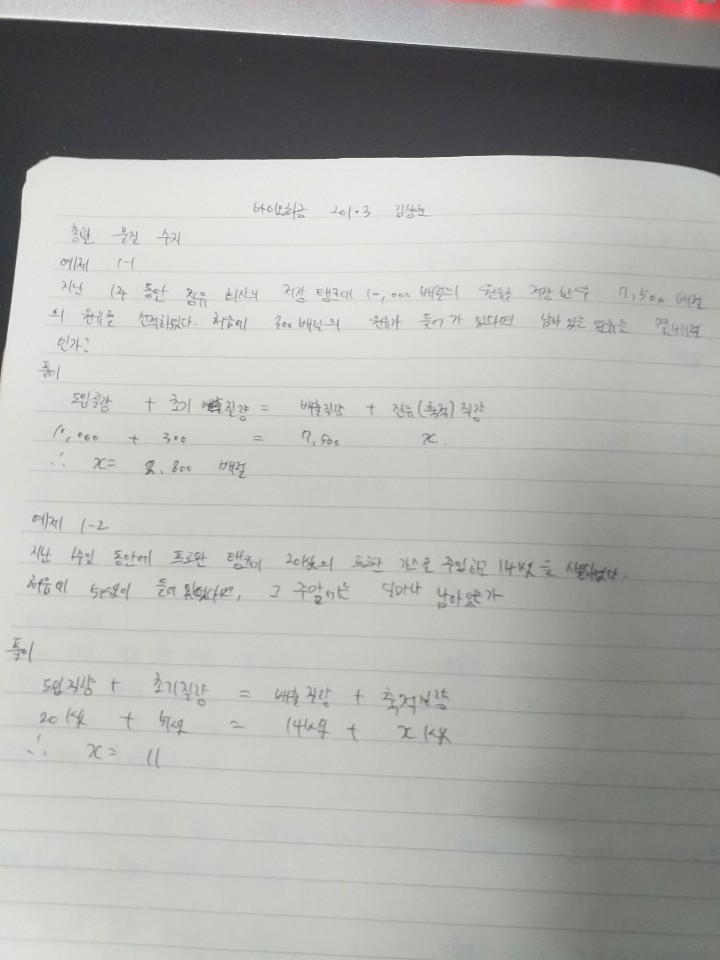 바이오화공 201.3 김상호
총괄 물질 수지
예제 1-1
지난 1주 동안 정유 회사의 저장 탱크에 10,000 배럴의 원유를 저장한 후 7,500 배럴
의 원유를 처음에 300 배럴의 원유가 들어가 있다면 남아있는 원유는 몇배럴
인가?
풀이
도입질량 + 초기 질량 = 배출질량 + 잔류(축적) 질량
10,000 + 300 = 7,500 x.
∴ x = 2,800 배럴
예제 1-2
지난 1주일 동안에 프로판 탱크에 20kg의 프로판 가스를 주입하고 14kg을
처음에 5kg이 들어 있었다면, 그 주말에는 얼마나 남아있는가
풀이
도입질량 + 초기질량 = 배출질량 + 축적질량
20kg + 5kg = 14kg + x kg
∴ x = 11